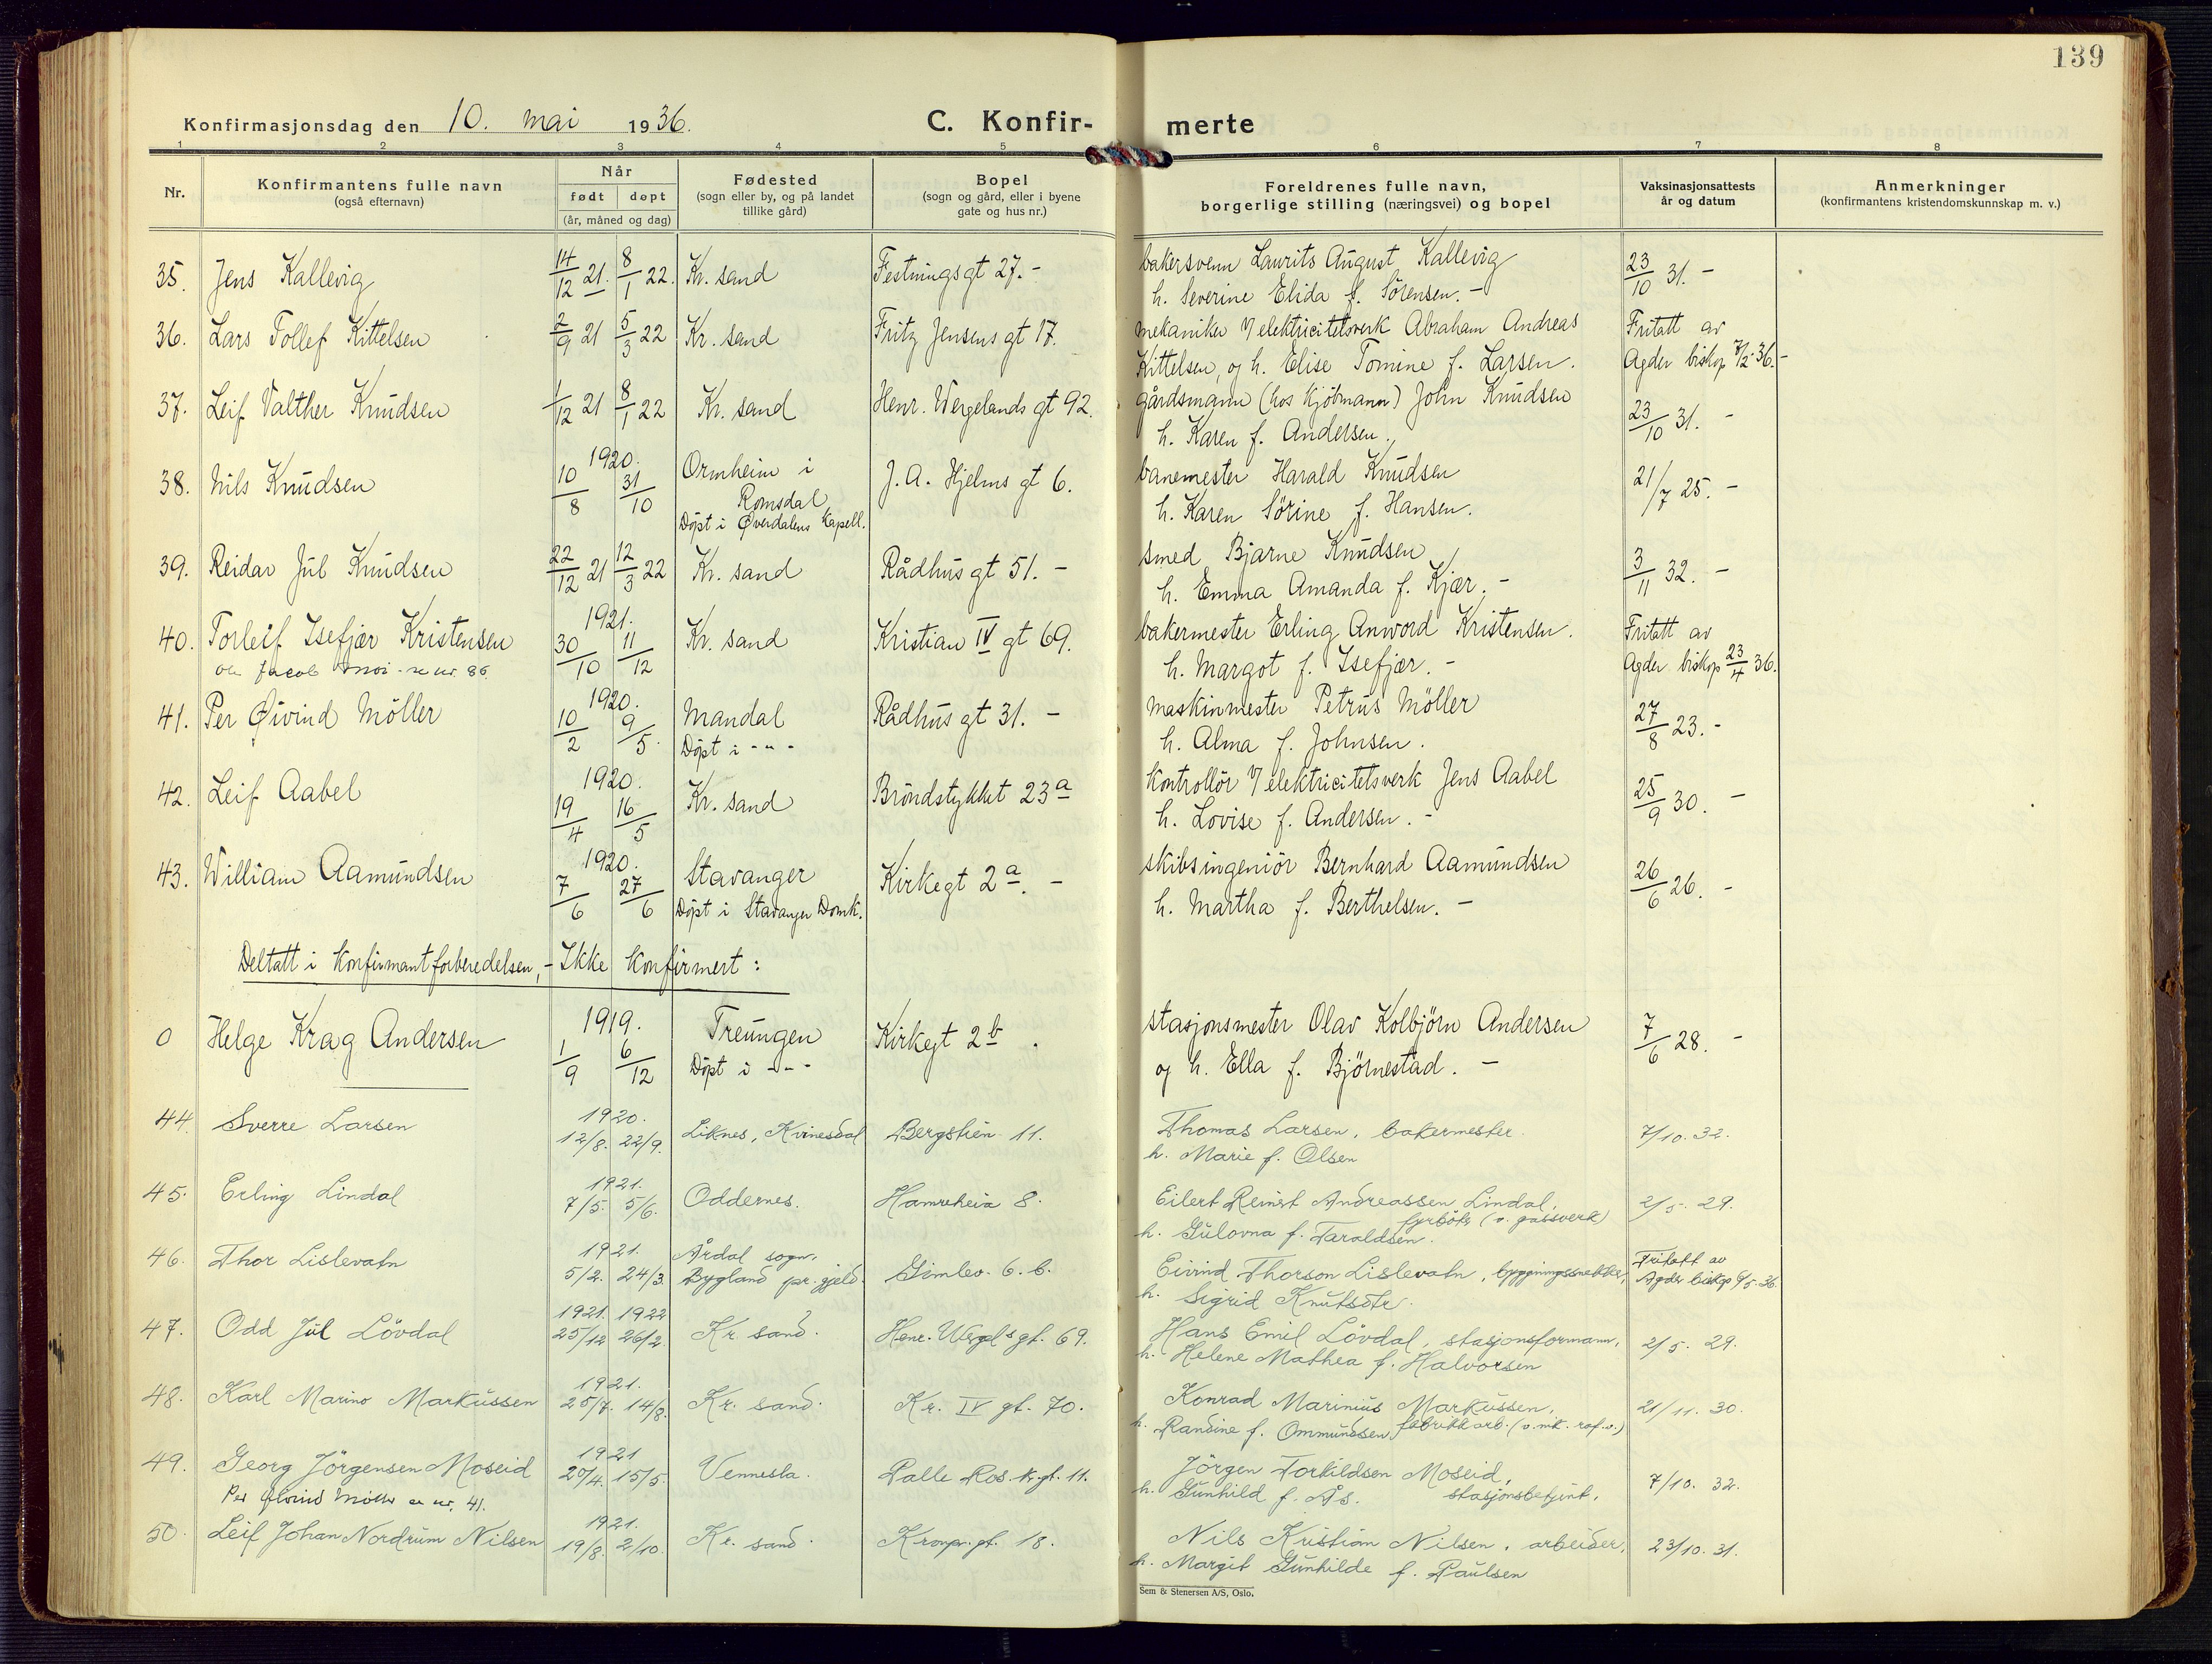 139
Konfirmasjonsdag den 10. mai 1936.
C. Konfir- merte
1 2 3 4 5 6 7 8
Nr.
Konfirmantens fulle navn
(også efternavn)
Når
født døpt
(år, måned og dag)
Fødested
(sogn eller by, og på landet
tillike gård)
Bopel
(sogn og gård, eller i byene
gate og hus nr.)
Foreldrenes fulle navn,
borgerlige stilling (næringsvei) og bopel
Vaksinasjonsattests
år og datum
Anmerkninger
(konfirmantens kristendomskunnskap m. v.)
35. Jens Kallevig 14/12 21. 8/1 22. Kr. sand Festningsgt 27. - bakersvenn Laurits August Kallevig 23/10 31. -
h. Severine Elida f. Sörensen. -
36. Lars Tollef Kittelsen 2/9 21 5/3 22 Kr. sand Fritz Jensens gt 17. mekaniker v/ elektricitetsverk Abraham Andreas Fritatt av
Kittelsen, og h. Elise Tomine f. Larsen. Agder biskop 7/2 36. -
37. Leif Valther Knudsen 1/12 21 8/1 22 Kr. sand Henr. Wergelands gt 92. gårdsmann (hos kjöbmann) John Knudsen 23/10 31. -
h. Karen f. Andersen.
38. Nils Knudsen 1920. 10/8 31/10 Ormheim i J. A. Hjelms gt 6. banemester Harald Knudsen 21/7 25. -
Romsdal h. Karen Sörine f. Hansen.
Döpt i Øverdalens Kapell.
39. Reidar Jul Knudsen 22/12 21 12/3 22 Kr. sand Rådhusgt 51. - smed Bjarne Knudsen 3/11 32. -
h. Emma Amanda f. Kjær. -
40. Torleif Isefjær Kristensen 1921. 30/10 11/12 Kr. sand Kristian IV gt 69. bakermester Erling Anword Kristensen. Fritatt av
Ole Jacob Moi - se nr. 86 h. Margot f. Isefjær. - Agder biskop 23/4 36.
41. Per Øivind Möller 1920. 10/2 9/5. Mandal Rådhusgt 31. - maskinmester Petrus Möller 27/8 23. -
Döpt i - " - h. Alma f. Johnsen.
42. Leif Aabel 1920. 19/4 16/5 Kr. sand Bröndstykket 23a kontrollör v/ elektricitetsverk Jens Aabel 25/9 30. -
h. Lovise f. Andersen. -
43. William Aamundsen 1920. 7/6 27/6 Stavanger Kirkegt 2a. - skibsingeniör Bernhard Aamundsen 26/6 26. -
Döpt i Stavanger Domk. h. Martha f. Berthelsen. -
Deltatt i konfirmantforberedelsen, - Ikke konfirmert:
0 Helge Krag Andersen 1919. 1/9 6/12 Treungen Kirkegt 2b. stasjonsmester Olav Kolbjörn Andersen 7/6 28. -
Döpt i - " - og h. Ella f. Björnestad. -
44. Sverre Larsen 1920. 12/8. 22/9. Liknes, Kvinesdal Bergstien 11. Thomas Larsen, bakermester. 7/10. 32.
h. Marie f. Olsen
45. Erling Lindal 1921. 7/5. 5/6. Oddernes. Hamreheia 8. Eilert Reinert Andreassen Lindal, 2/5. 29.
fyrböter (v. gassverk)
h. Gulovna f. Taraldsen.
46. Thor Lislevatn 1921. 5/2. 24/3. Årdal sogn, Gimlev. 6. b. Eivind Thorson Lislevatn, bygningssnekker, Fritatt av
Bygland pr. gjeld. h. Sigrid Knutsdtr. Agder biskop 9/5. 36.
47. Odd Jul Lövdal 1921. 1922 25/12 26/2. Kr. sand. Henr. Wergel.s gt. 69. Hans Emil Lövdal, stasjonsformann. 2/5. 29.
h. Helene Mathea f. Halvorsen
48. Karl Marino Markussen 1921. 25/7. 14/8. Kr. sand. Kr. IV gt. 70. Konrad Marinius Markussen, 21/11. 30.
h. Randine f. Ommundsen fabrikkarb. (v. nik. raf. v.)
49. Georg Jörgensen Moseid 1921 20/4. 15/5. Vennesla. Palle Ros. kr. gt. 11. Jörgen Torkildsen Moseid, 7/10. 32.
Per Øivind Möller se nr. 41. h. Gunhild f. Ås. stasjonsbetjent.
50. Leif Johan Nordrum Nilsen 1921. 19/8. 2/10. Kr. sand. Kronpr. gt. 18. Nils Kristian Nilsen, arbeider, 23/10. 31.
h. Margit Gunhilde f. Paulsen
Sem & Stenersen A/S, Oslo.